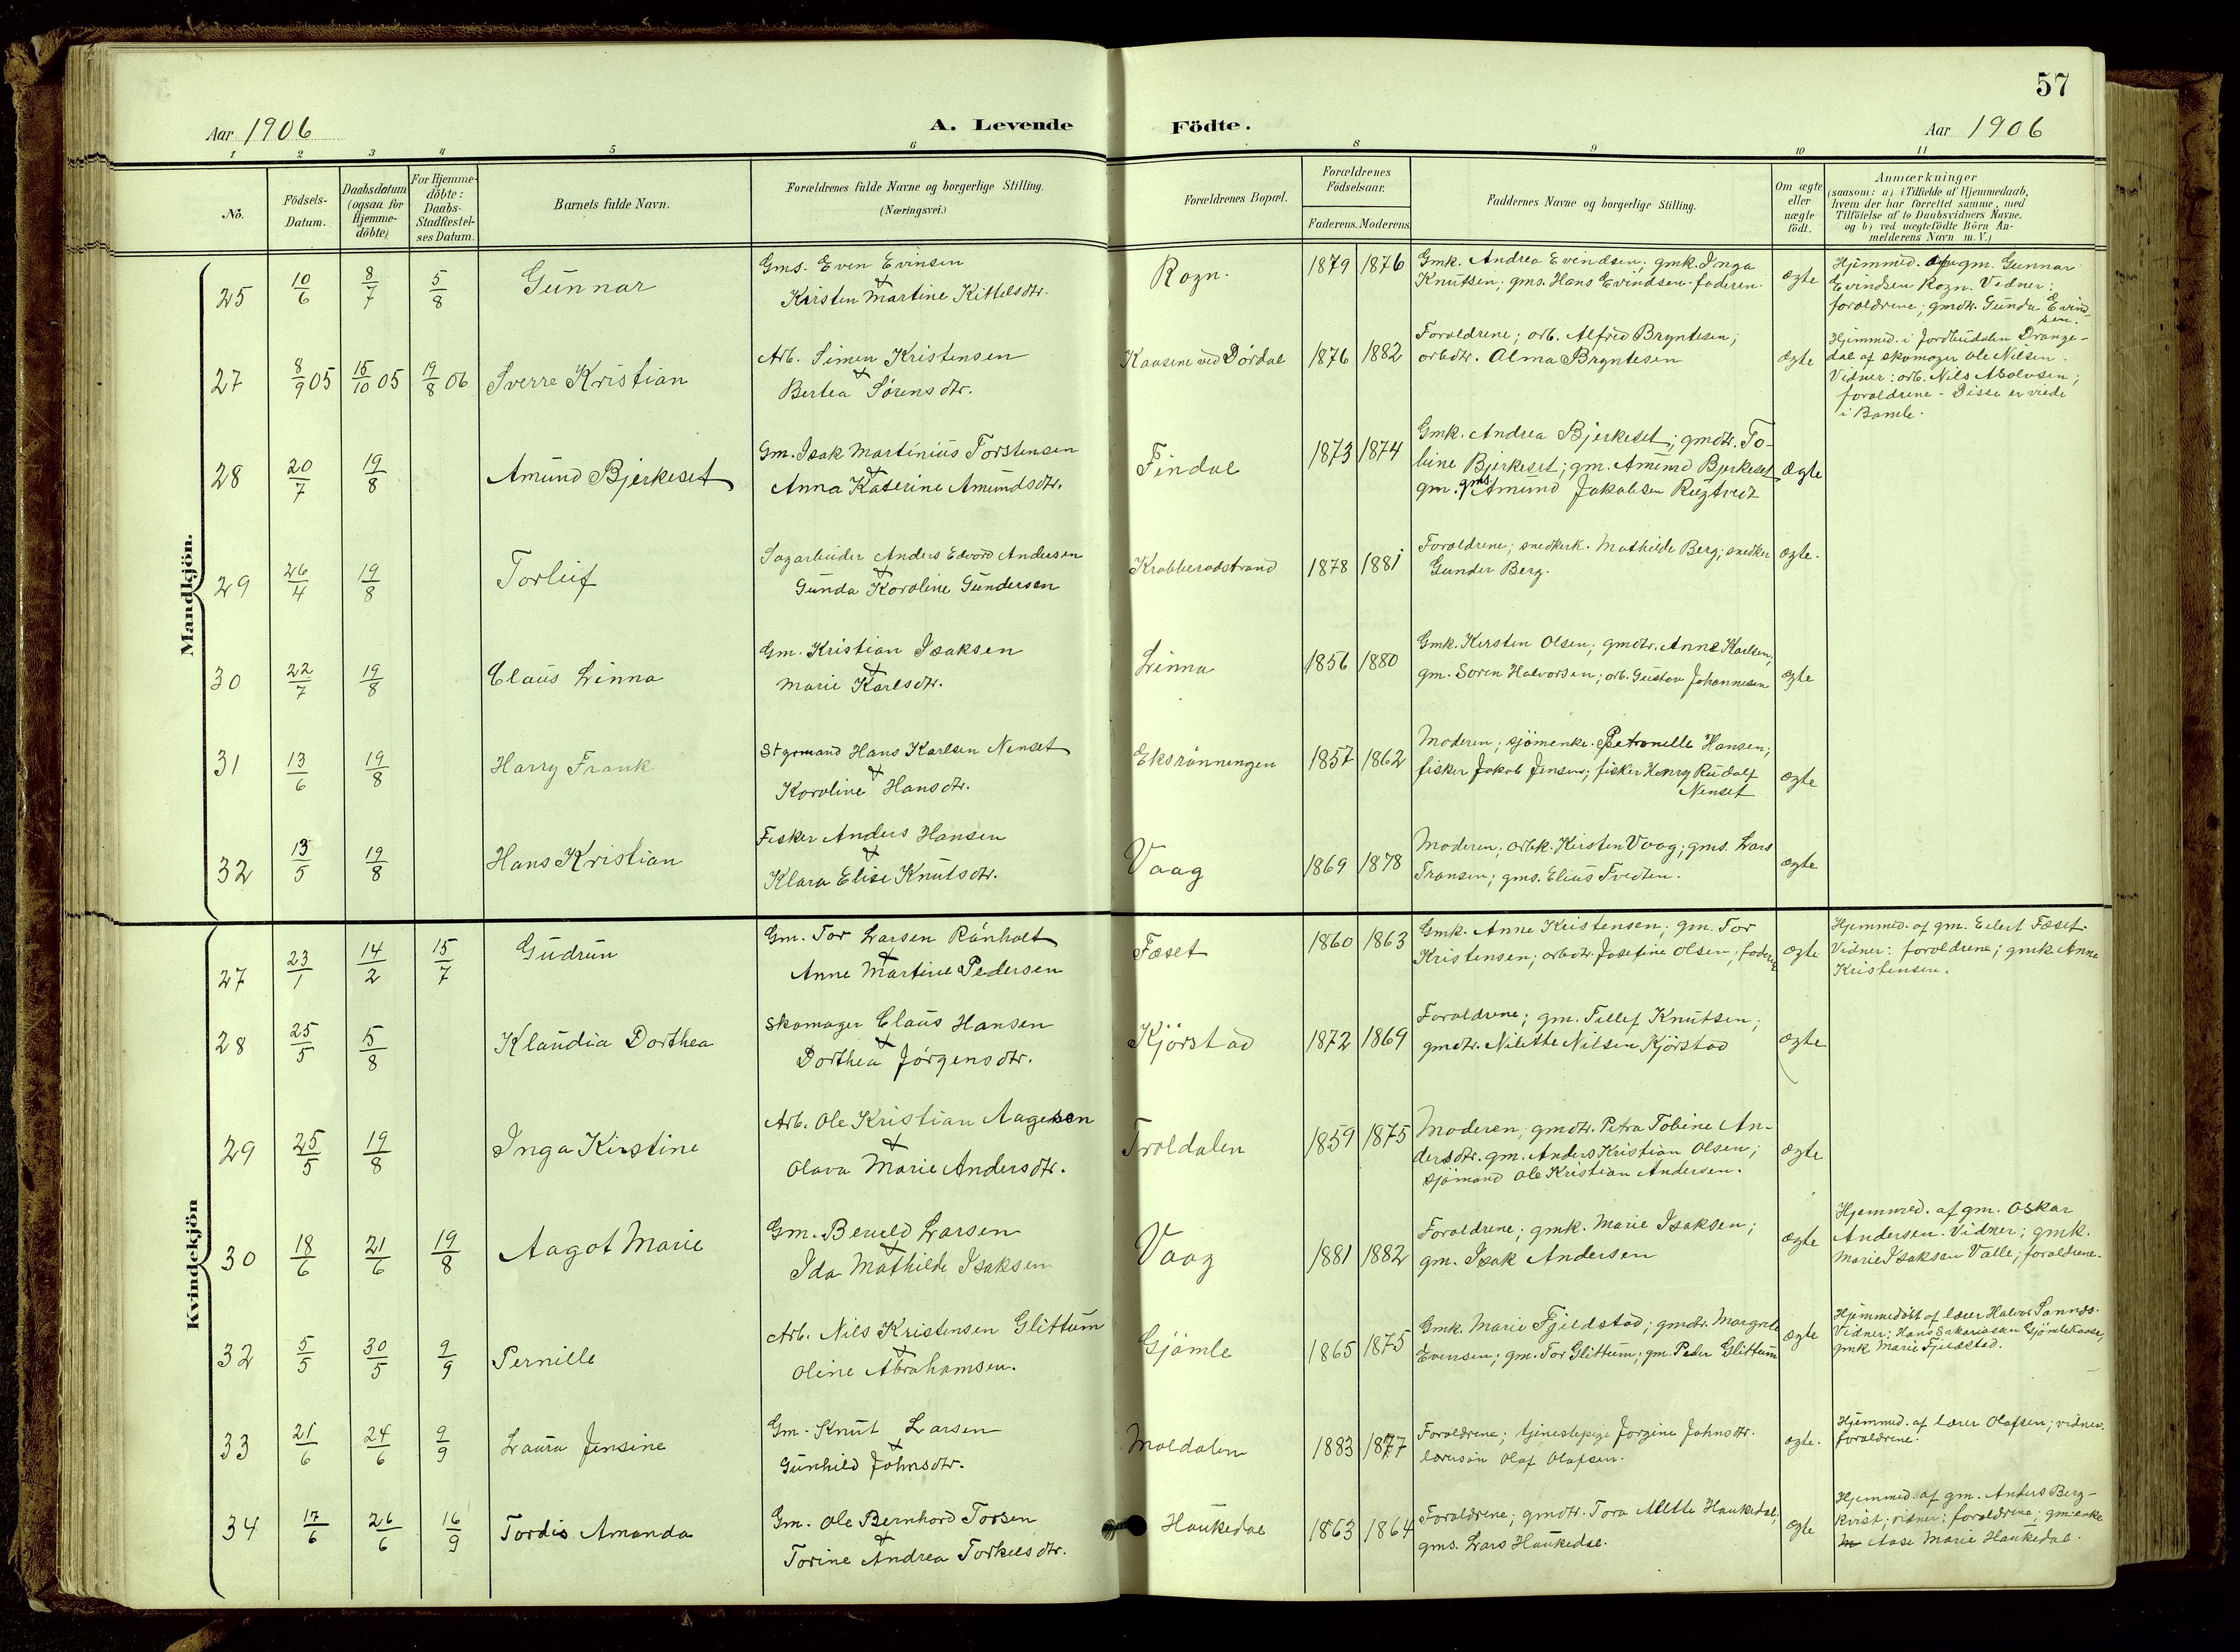 57
Aar 1906
A. Levende Födte.
Aar 1906
1 2 3 4 5 6 8 9 10 11
No.
Födsels-
Datum.
Daabsdatum
(ogsaa for
Hjemme-
döbte)
For Hjemme-
döbte:
Daabs-
Stadfæstel-
ses Datum.
Barnets fulde Navn.
Forældrenes fulde Navne og borgerlige Stilling.
(Næringsvei.)
Forældrenes Bopæl.
Forældrenes
Födselsaar.
Faderens. Moderens.
Faddernes Navne og borgerlige Stilling.
Om ægte
eller
uægte
födt.
Anmærkninger
(saasom: a) i Tilfælde af Hjemmedaab,
hvem der har forrettet samme, med
Tilföielse af to Daabsvidners Navne.
og b) ved uægtefödte Börn An-
melderens Navn m. V.)
Mandkjön.
25 10/6 8/7 5/8 Gunnar
Gms. Even Evinsen
&
Kirsten Martine Kittelsdtr.
Rogn. 1879 1876
Gmk. Andrea Evindsen; gmk. Inga
Knutsen; gms. Hans Evindsen. faderen.
ægte
Hjemmed. af gm. Gunnar
Evindsen Rogn. Vidner:
forældrene; gmdtr. Gunda Evind-
sen.
27 8/9 05 15/10 05 19/8 06 Sverre Kristian
Arb. Simen Kristensen
&
Bertea Sörensdtr.
Kaasene ved Dördal 1876 1882
Forældrene; arb. Alfred Bryntesen;
arbdtr. Alma Bryntesen
ægte
Hjemmed. i Jordbudalen Drange-
dal af skomager Ole Nilsen.
Vidner: arb. Nils Abolvsen;
forældrene - Disse er viede
i Bamle.
28 20/7 19/8 Amund Bjerkeset
Gm. Isak Martinius Torstensen
&
Anna Katerine Amundsdtr.
Findal 1873 1874
Gmk. Andrea Bjerkeset; gmdtr. To-
line Bjerkeset; gm. Amund Bjerkeset
gm. gms. Amund Jakobsen Rugtvedt
Ægte
29 26/4 19/8 Torleif
Sagarbeider Anders Edvard Andersen
&
Gunda Karoline Gundersen
Krabberødstrand 1878 1881
Forældrene; snedkerk. Mathilde Berg; snedker
Gunder Berg.
ægte.
30 22/7 19/8 Claus Linna
Gm. Kristian Isaksen
&
Marie Karlsdtr.
Linna 1856 1880
Gmk. Kirsten Olsen; gmdtr. Anne Karlsen;
gm. Soren Halvorsen; arb. Gustav Johannesen
ægte
31 13/6 19/8 Harry Frank
Styrmand Hans Karlsen Nenset
&
Karoline Hansdtr.
Eksrönningen 1857 1862
Moderen; sjömenke. Petronelle Hansen;
fisker Jakob Jensen; fisker Henry Rudolf
Nenset
ægte
32 13/5 19/8 Hans Kristian
Fisker Anders Hansen
&
Klara Elise Knutsdtr.
Vaag 1869 1878
Moderen; arbk. Kirsten Vaag; gms. Lars
Fransen; gms. Elius Tvedten.
ægte
Kvindekjön
27 23/1 14/2 15/7 Gudrun
Gm. Tor Larsen Rönholt
&
Anne Martine Pedersen
Fæset 1860 1863
Gmk. Anne Kristensen; gm. Tor
Kristensen; arbdtr. Josefine Olsen; faderen
ægte
Hjemmed. af gm. Eilert Fæset.
Vidner: forældrene; gmk. Anne
Kristensen.
28 25/5 5/8 Klaudia Dorthea
Skomager Claus Hansen
&
Dorthea Jörgensdtr.
Kjörstad 1872 1869
Forældrene; gm. Tellef Knutsen;
gmdtr. Nilette Nilsen Kjörstad
ægte
29 25/5 19/8 Inga Kirstine
Arb. Ole Kristian Aagesen
&
Olava Marie Andersdtr.
Troldalen 1859 1875
Moderen; gmdtr. Petra Tobine An-
dersdtr. gm. Anders Kristian Olsen;
sjömand Ole Kristian Andersen.
ægte
30 18/6 21/6 19/8 Aagot Marie
Gm. Berueld Larsen
&
Ida Mathilde Isaksen
Vaag 1881 1882
Forældrene; gmk. Marie Isaksen;
gm. Isak Andersen
ægte
Hjemmed. af gm. Oskar
Andersen. Vidner; gmk.
Marie Isaksen Valle; forældrene.
32 5/5 30/5 9/9 Pernille
Arb. Nils Kristensen Glittum
&
Oline Abrahamsen.
Gjömle 1865 1875
Gmk. Marie Fjeldstad; gmdtr. Margrete
Evensen; gm. Tor Glittum; gm. Peder Glittum
ægte
Hjemmedöbt af lærer Halvor Sannes.
Vidner: Hans Sakariasen Gjömlekaase,
gmk. Marie Fjeldstad.
33 21/6 24/6 9/9 Laura Jensine
Gm. Knut Larsen
&
Gunhild Johnsdtr.
Moldalen 1883 1877
Forældrene; tjenestepige Jorgine Johnsdtr.
lærersön Olaf Olafsen.
ægte.
Hjemmed. af lærer Olafsen; vidner.
forældrene.
34 17/6 26/6 16/9 Tordis Amanda
Gm. Ole Bernhard Torsen
&
Torine Andrea Torkelsdtr.
Haukedal 1863 1864
Forældrene; gmdtr. Tora Mette Haukedal;
gms. Lars Haukedal.
ægte
Hjemmed. af gm. Anders Berg-
kvist; vidner: forældrene; gmenke
Aase Marie Haukedal.